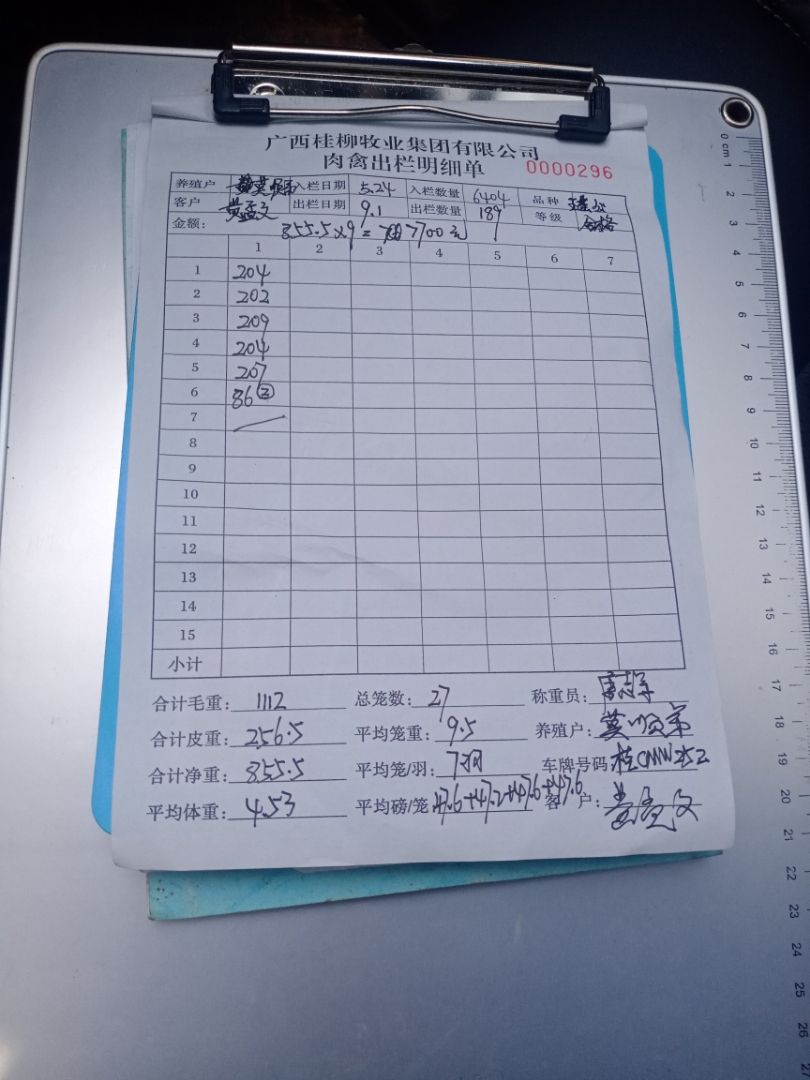 广西桂柳牧业集团有限公司
肉禽出栏明细单 0000296
养殖户 入栏日期 5.24 入栏数量 6404 品种
客户 黄孟文 出栏日期 9.1 出栏数量 189 等级 合格
金额: 855.5×9= 7700元
1 2 3 4 5 6 7
1 204
2 202
3 209
4 204
5 207
6 86③
7
8
9
10
11
12
13
14
15
小计
合计毛重: 1112 总笼数: 27 称重员:
合计皮重: 256.5 平均笼重: 9.5 养殖户: 莫顺弟
合计净重: 855.5 平均笼/羽: 7羽 车牌号码: 桂CMW252
平均体重: 4.53 平均磅/笼: 47.6+47.2+47.6+47.6 客户: 黄孟文
0 cm 1
2
3
4
5
6
7
8
9
10
11
12
13
14
15
16
17
18
19
20
21
22
23
24
25
26